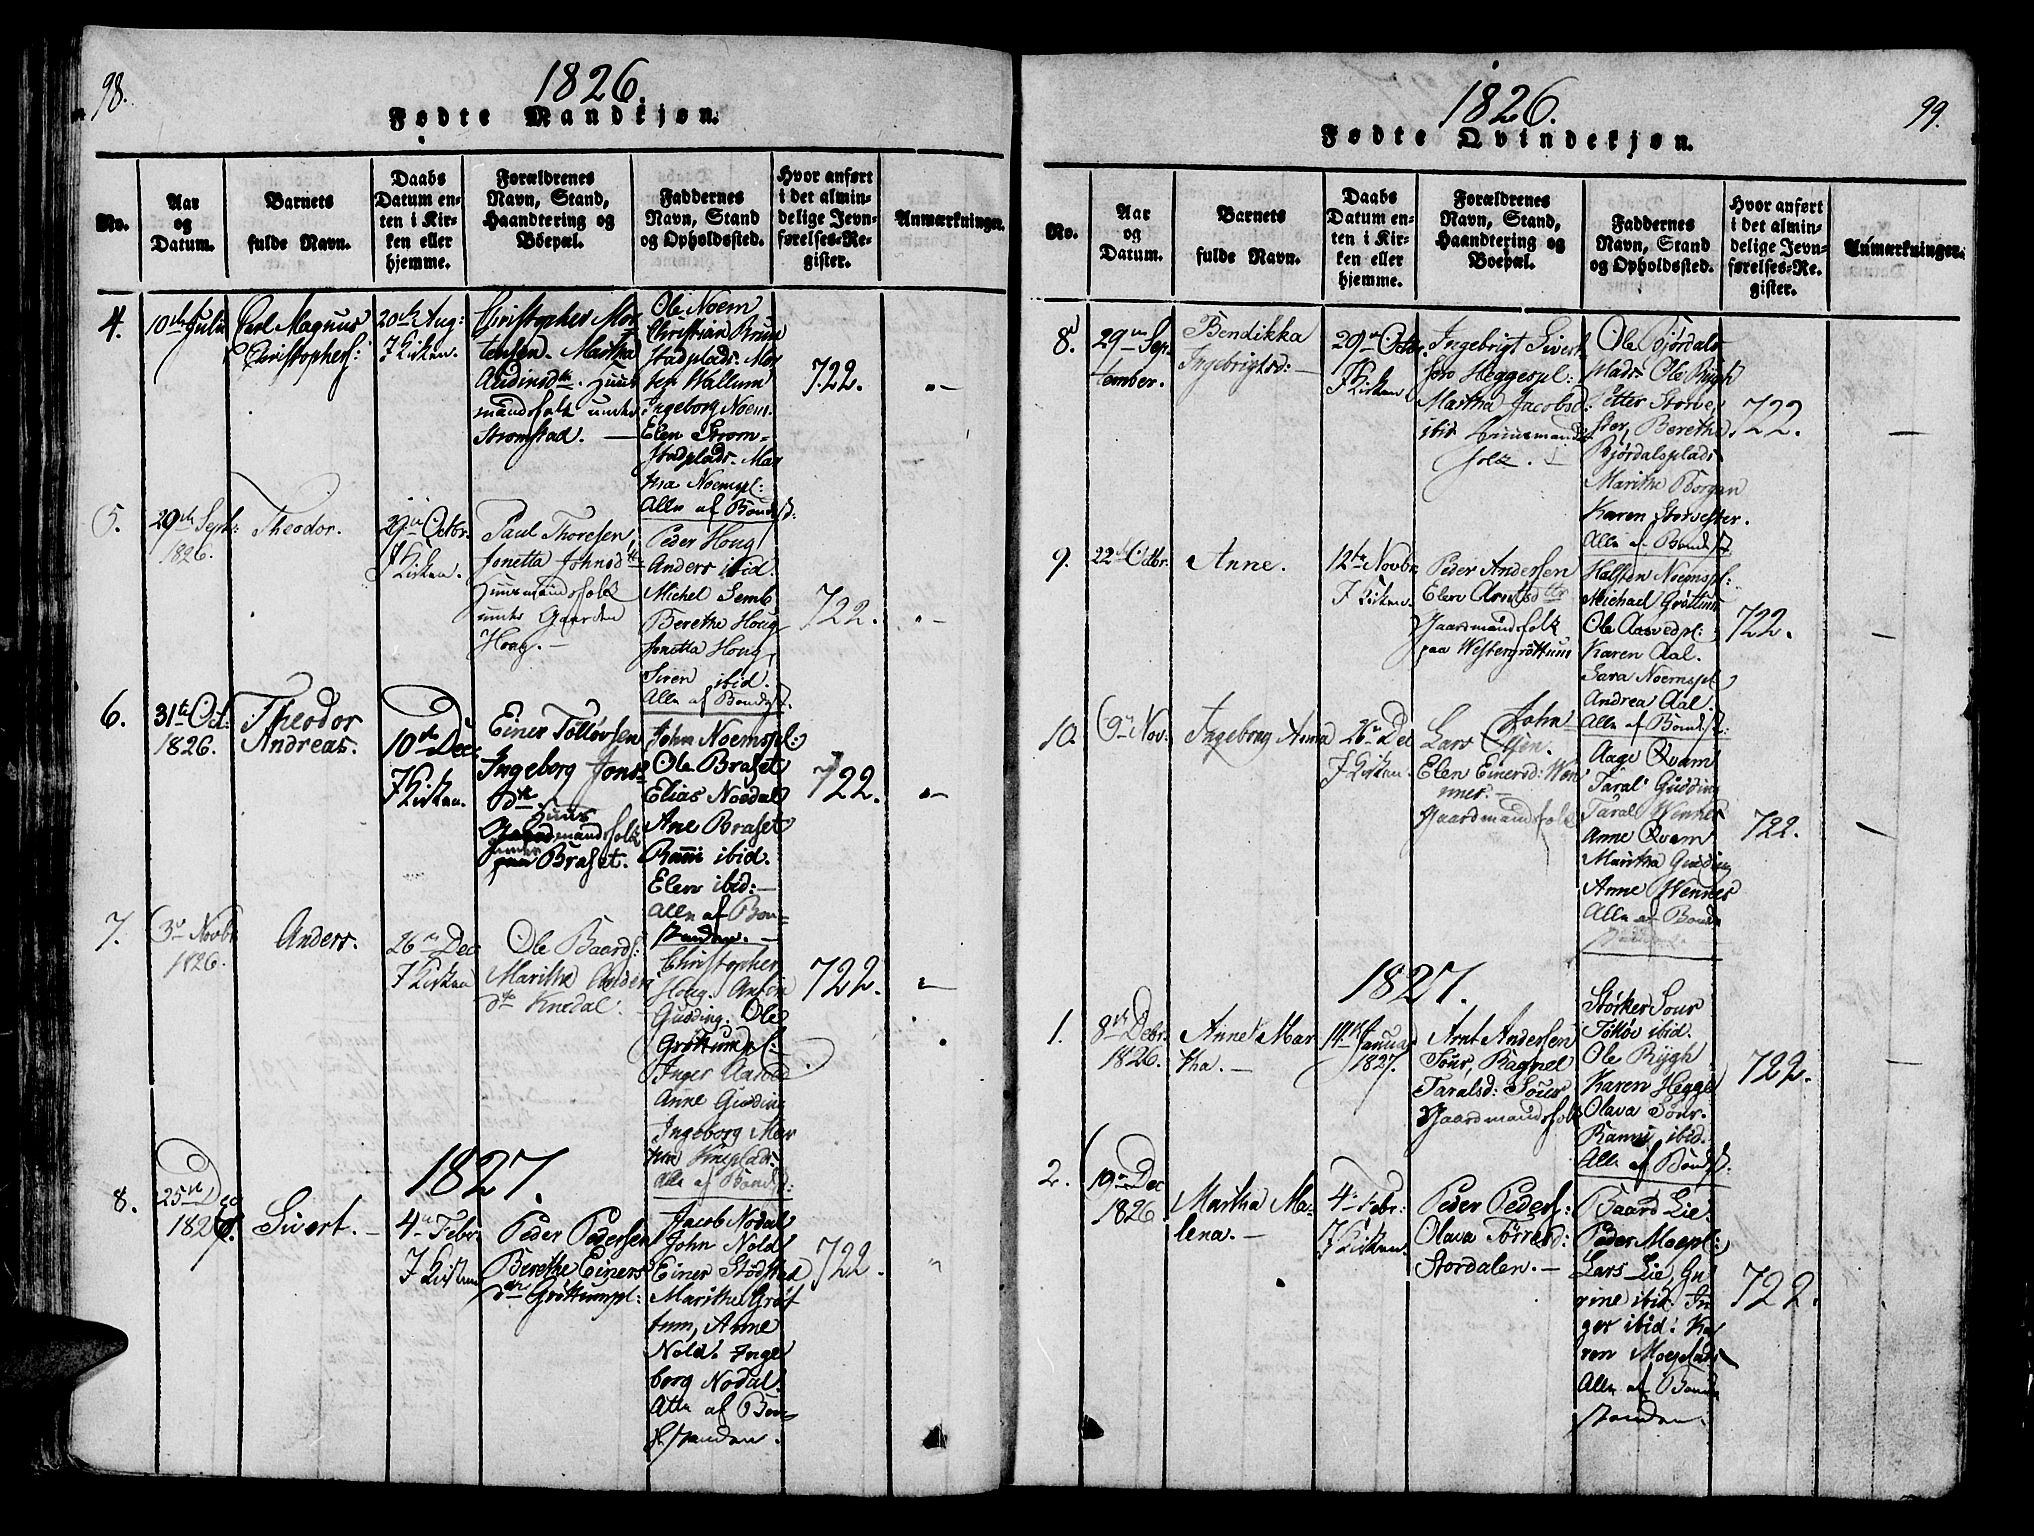 98.
1826.
Fødte Mandkjøn.
No.
Aar
og
Datum.
Barnets
fulde Navn.
Daabs
Datum en-
ten i Kir-
ken eller
hjemme.
Forældrenes
Navn, Stand,
Haandtering og
Böepæl.
Faddernes
Navn, Stand
og Opholdssted.
Hvor anført
i det almin-
delige Jevn-
førelses-Re-
gister.
Anmærkninger.
4.
10de Julii
Carl Magnus
Christophers:
20de Aug:
I Kirken.
Christopher Mor
tensen. Martha
Andinsdtr. Huus
mandsfolk under
Stromstad. —
Ole Noem
Christian Brum
stadplads. Mor
ten Wallum
Ingeborg Noem.
Elen Strom-
stadplads. Mar
tha Noempl:
Alle af Bondest:
722.
5.
29de Sept:
1826.
Theodor.
29de Octbr.
I Kirken.
Paul Thoresen,
Jonetta Johnsdtr
Huusmandsfolk
under Gaarden
Houg. —
Peder Houg
Anders ibid.
Michel Semb
Berethe Houg
Jonetta Houg,
Siren ibid.
Alle af Bondest.
722.
6.
31te Oct:
1826.
Theodor
Andreas.
10de Dec
I Kirken.
Einer Tølløvsen
Ingeborg Jons
dtr.
Huus
mandsfolk
under
Braset.
John Noemspl:
Ole Braset
Elias Nordal
Ane Braset
Rañi ibid.
Elen ibid: —
Alle af Bon-
standen. —
722.
7.
3de Novbr
1826.
Anders.
26de Dec
I Kirken
Ole Baards:
Marithe Anders
dtr Knedal.
Christopher
Houg. Anton
Gudding. Ole
Grøttumpl:
Inger Aasved
Anne Gudding
Ingeborg Mar
tha
Alle af Bondest:
722.
1827.
8.
25de Dec
1826.
Sivert. —
4de Febr
I Kirken
Peder Pedersen
Berethe Einers
dtr Grøttumpl:
Jacob Nodal
John Nold
Einer Stødstad
Marithe Grøt
tum, Anne
Nold. Inge
borg Nodal.
Alle af Bon-
standen.
722.
99.
1826.
Fødte Qvindekjøn.
No.
Aar
og
Datum.
Barnets
fulde Navn.
Daabs
Datum en-
ten i Kir-
ken eller
hjemme.
Forældrenes
Navn, Stand,
Haandtering og
Boepæl.
Faddernes
Navn, Stand
og Opholdssted.
Hvor anført
i det almin-
delige Jevn-
førelses-Re-
gister.
Anmærkninger.
8.
29de Sep-
tember.
Bendikka
Ingebrigtsd: —
29de Octbr.
I Kirken
Ingebrigt Sivert
Heggespl:
Martha Jacobsd:
ibid Huusmands
folk. —
Ole Bjørdals
plads. Ole Rygh
Petter Storve
ster, Berethe
Bjørdalsplads
Marithe Borgen
Karen Storvester.
Alle af Bondest
722.
9.
22de Octbr.
Anne.
12te Novbr
I Kirken.
Peder Andersen
Elen Arntsdtr
Gaardmandsfolk
paa Westergrøttum
Halsten Noemspl:
Michael Grøttum
Ole Aasvedpl:
Karen Aal.
Sara Noemspl
Andrea Aal.
Alle af Bondest:
722.
10.
9de Nov:
Ingeborg Anna
26de Dec
I Kirken.
Lars John
Elen Einersd: Wen
nes. —
Gaardmandsfolk
Aage Qvam
Taral Gudding
Taral Wennes
Anne Qvam
Marítha Gudding
Anne Wennes
Alle af Bonde
standen. —
722.
1827.
1.
8de Debr.
1826.
Anne Mar
tha. —
14de Januar
1827.
Arnt Andersen
Sour, Ragnel
Taralsd: Sour
Gaardmandsfolk
Størker Sour
Tølløv ibid.
Ole Rygh
Karen Hegge
Olava Sour.
Rañi ibid.
Alle af Bondst.
722.
2.
19de Dec
1826
Martha Ma-
lena. —
4de Febr:
I Kirken.
Peder Peders:
Olava Torresd:
Stordalen. —
Baard Lie.
Peder Moepl:
Lars Lie, Gu
rine ibid. In
ger ibid. Ka
ren Moeplads
Alle af Bonde
standen.
722.